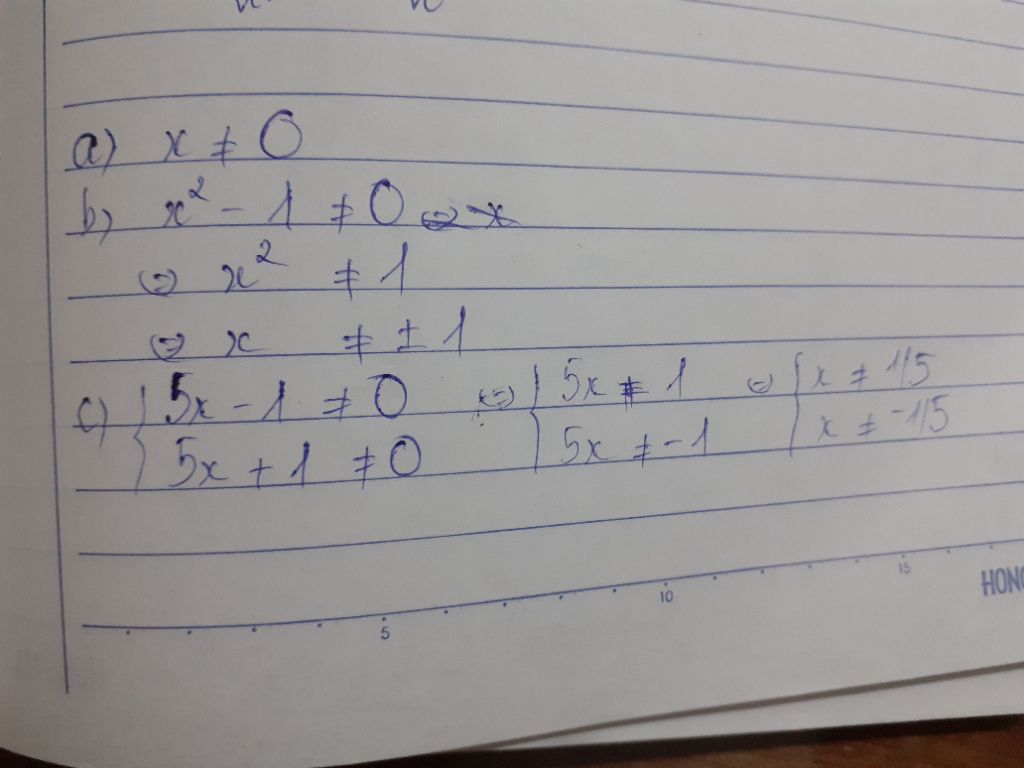 a) x ≠ 0
b) x² - 1 ≠ 0 ⇔ x
⇔ x² ≠ 1
⇔ x ≠ ± 1
c) { 5x - 1 ≠ 0 ⇔ { 5x ≠ 1 ⇔ { x ≠ 1/5
5x + 1 ≠ 0 5x ≠ -1 x ≠ -1/5
5 10 15
HONG